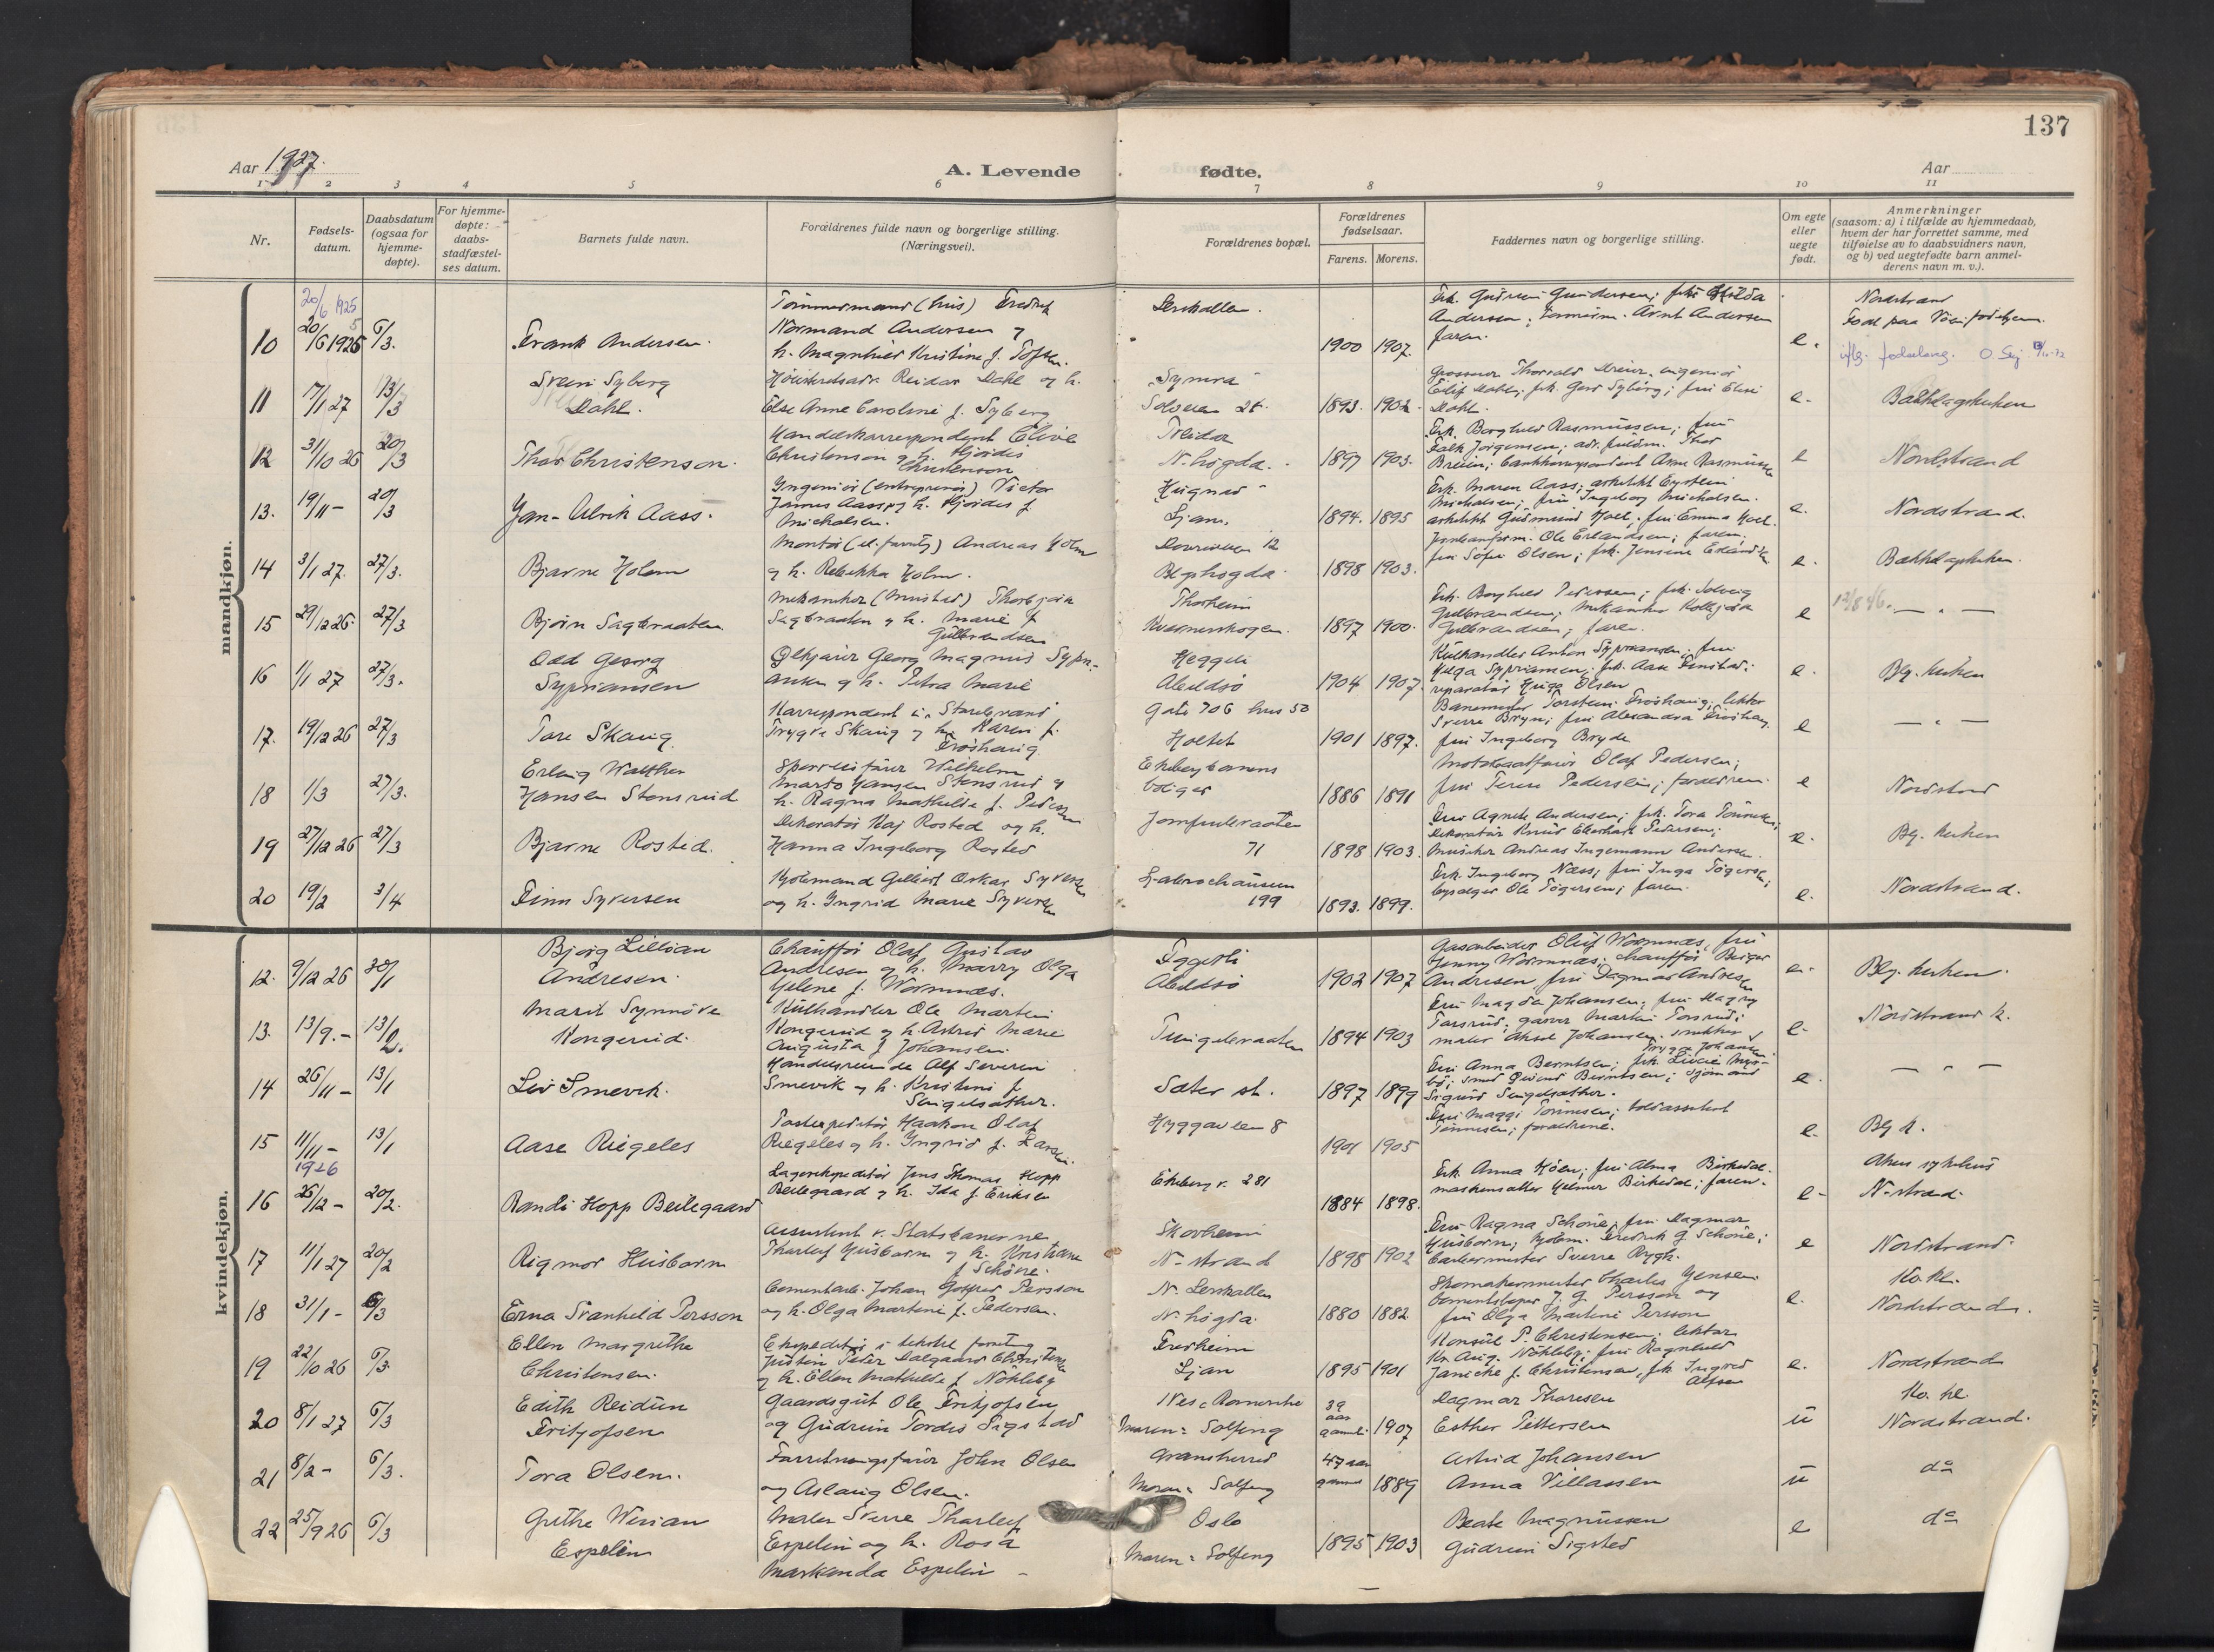 137
Aar 1927.
A. Levende
fødte.
Aar
1 2 3 4 5 6 7 8 9 10 11
Nr.
Fødsels-
datum.
Daabsdatum
(ogsaa for
hjemme-
døpte).
For hjemme-
døpte:
daabs-
stadfæstel-
ses datum.
Barnets fulde navn.
Forældrenes fulde navn og borgerlige stilling.
(Næringsvei).
Forældrenes bopæl.
Forældrenes
fødselsaar.
Farens. Morens.
Faddernes navn og borgerlige stilling.
Om egte
eller
uegte
født.
Anmerkninger
(saasom: a) i tilfælde av hjemmedaab,
hvem der har forrettet samme, med
tilføielse av to daabsvidners navn,
og b) ved uegtefødte barn anmel-
derens navn m. v.).
mandkjøn.
20/6 1925
10 20/6 1925 6/3.
Frank Andersen.
Tømmermand (hus) Fredrik
Normand Andersen og
h. Magnhild Kristine f. Tofsen.
Lerskallen.
1900 1907.
Frk. Gudrun Gundersen; frk. Hilda
Andersen; tømmerm. Arnt Andersen
faren.
e.
Nordstrand
11 17/1 27 13/3
Svein Syberg
Dahl.
Høiesteretsadv. Reidar Dahl og h.
Else Anne Caroline f. Syberg
"Synnra"
Solveien 28.
1893. 1902.
Eilif Dahl; frk. Gerd Syberg; fru Elise
Dahl.
e.
Bækkelagskirken
12 31/10 26 20/3
Thor Christenson.
Handelskorrespondent Clive
Christenson og h. Hjørdis
Christenson
N. høgda.
1897 1903.
Frk. Borghild Rasmussen; fru
Falk Jørgensen; adv. fuldm. Thor
Breien; bankkorrespondent Arne Rasmussen
e
Nordstrand
13. 19/11 - 20/3
Jan-Ulrik Aass.
Ingeniør (entreprenør) Victor
James Aass og h. Hjørdis f.
Michalsen.
Ljan.
1894. 1895
Frk. Maren Aass; arkitekt Eystein
Michalsen; fru Ingeborg Michalsen.
arkitekt Gudmund Hoel; fru Emma Hoel.
e.
Nordstrand.
14 3/1 27. 27/3.
Bjarne Holm
Montør (el. forretn.) Andreas Holm
og h. Rebekka Holm.
12
1898 1903.
Ole Erlandsen; faren;
fru Sofie Olsen; frk. Jensine Erlandsen
e.
Bækkelagskirken.
15 29/12 26. 27/3
Bjørn Sagbraaten.
Mekaniker (Mustad) Thorbjørn
Sagbraaten og h. Marie f.
Gulbrandsen
Thorheim
Kværnerskogen.
1897 1900.
Frk. Borghild Pedersen; frk. Solveig
Gulbrandsen; mekaniker Kolbjørn
Gulbrandsen; faren.
e
— " —
16 1/1 27 27/3.
Odd Georg
Sypriansen
Ølkjører Georg Magnus Sypri-
ansen og h. Petra Marie
Heggeli
Abildsø
1904 1907.
Kulhandler Anton Sypriansen; fru
Helga Sypriansen; frk. Aase
reparatør Hugo Olsen
e.
Blg. kirken
17. 19/12 26 27/3
Tore Skaug
Korrespondent i "Storebrand"
Trygve Skaug og h. Karen f.
Frøshaug.
Gate 706 hus 50
Holtet
1901 1897.
Banemester Torstein Frøshaug; lektor
Sverre Bryn; fru Alexandra Frøshaug
fru Ingeborg Bryde
e
— " —
18 1/3 27/3.
Erling Walther
Hansen Stensrud
Sporveisfører Wilhelm
Marto Hansen Stensrud og
h. Ragna Mathilde f. Pedersen
Ekebergbanens
boliger
1886 1891
Olaf Pedersen;
fru Terese Pedersen; forældrene.
e
Nordstrand
19 27/12 26 27/3
Bjarne Rosted.
Dekoratør Kaj Rosted og h.
Hanna Ingeborg Rosted
Jomfrubraaten
71
1898 1903.
Fru Agnete Andersen; frk. Tora Tønnesen;
Dekoratør Knud Eberhart Pedersen;
musiker Andreas Ingemann Andersen.
e.
Blg. kirken
20 19/2 3/4
Finn Syversen
Gilbert Oskar Syversen
og h. Ingrid Marie Syversen
Ljabrochausseen
199
1893. 1899.
Frk. Ingeborg Næss; fru Inga Tøgersen;
Ole Tøgersen; faren.
e.
Nordstrand.
kvindekjøn.
12. 9/12 26 30/1
Bjørg Lillian
Andresen.
Chauffør Olaf Gustav
Andresen og h. Marry Olga
Helene f. Wormnæs.
Eggerli
Abildsø
1902 1907
Gasarbeider Oluf Wormnæs, fru
Jenny Wormnæs; chauffør Birger
Andresen, fru Dagmar Andresen
e.
Blg. kirken.
13. 13/9. - 13/2.
Marit Synnøve
Kongerud.
Kulhandler Ole Martin
Kongerud og h. Astrid Marie
Augusta f. Johansen.
Tungebraaten
1894 1903
Fru Magda Johansen; fru Magny
Torsrud; garver Martin Torsrud;
maler Aksel Johansen, snekker
Trygve Johansen
e.
Nordstrand k.
14 26/11 - 13/1
Liv Smevik.
Handelsreisende Alf Severin
Smevik og h. Kristine f.
Sengelsæther.
Sæter st.
1897 1899
Fru Anna Berntsen;
smed Øivind Berntsen; sjømand
Sigurd Sengelsæther.
e.
— " —
15 11/11 - 13/1
1926
Aase Riegeles
Postexpeditør Haakon Olaf
Riegeles og h. Ingrid f. Larsen.
Hyggeveien 8
1901 1905
Fru Maggi Tønnesen; toldassistent
Tønnesen; forældrene.
e.
Blg k.
16 25/12 - 20/2.
Randi Hopp Beilegaard
Lagerekspeditør Jens Thomas Hopp
Beilegaard og h. Ida f. Eriksen
Ekeberg v. 281
1884 1898.
Frk. Anna Hjølen; fru Alma Birkedal.
maskinsætter Helmer Birkedal; faren.
e.
Akers sykehus
N-strand.
17 11/1 27 20/2
Rigmor Husborn
Assistent v. Statsbanerne
Tharlef Husborn og h. Kristiane
f. Schøne.
Skovheim
N-strand
1898 1902
Fru Ragna Schøne; fru Dagmar
Husborn; Fredrik G. Schøne;
barbermester Sverre Rygh.
e
Nordstrand.
18 31/1 - 6/3
Erna Svanhild Persson
Cementarb. Johan Gotfred Persson
og h. Olga Martine f. Pedersen.
N. Lerskallen
N. høgda.
1880 1882.
Skomakermester Charles Jensen
cementstøper J. G. Persson og
fru Olga Martine Persson
e.
Ko. kl.
Nordstrand.
19 22/10 26 6/3.
Ellen Margrethe
Christensen.
Ekspeditør i tekstil forretning
Justin Peder Dalgaard Christensen
og h. Ellen Mathilde f. Nökleby
Fredheim
Ljan
1895 1901
Konsul P. Christensen; lektor
Kr. Aug. Nökleby; fru Ragnhild
Janicke f. Christensen, frk. Ingrid
Alfsen
e.
Nordstrand
20 8/1 27 6/3
Edith Reidun
Fritjofsen
Gaardsgut Ole Fritjofsen
og Gudrun Tordis Sigstad
Nes, Romerike
Moren: Solfeng
39
aar
gammel 1907
Dagmar Thoresen
Esther Pettersen
u
Ko. kl.
Nordstrand.
21 8/2 - 6/3.
Tora Olsen.
Forretningsfører John Olsen
og Aslaug Olsen.
Gransherred
Moren: Solfeng
47 aar
gammel 1889
Astrid Johansen
Anna Villassen
u
do
22 25/9 26 6/3
Grethe Wivian
Espelin
Maler Sverre Tharlef
Espelin og h. Rosa
Markenda Espelin
Oslo
Moren: Solfeng
1895 1903
Beate Magnussen
Gudrun Sigsted
e
do